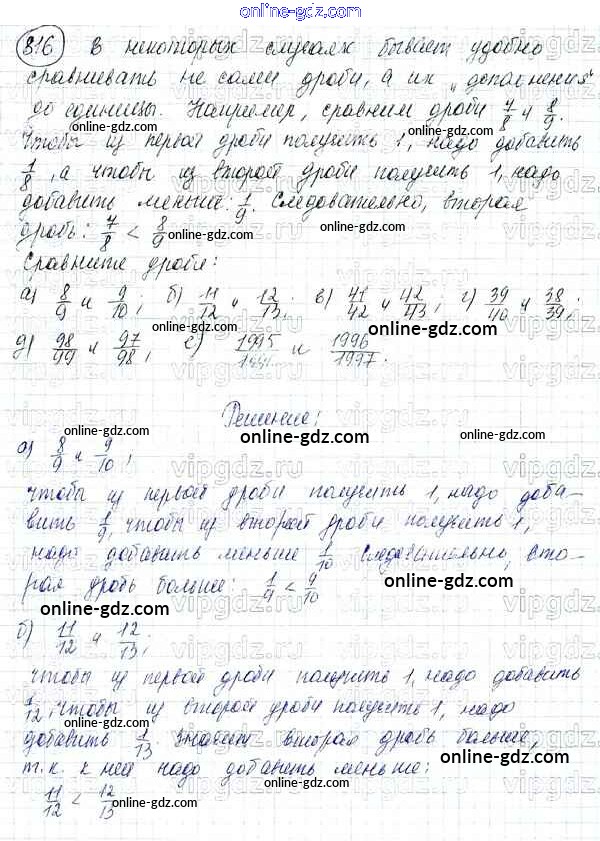 online-gdz.com
816 В некоторых случаях бывает удобно
сравнивать не сами дроби, а их „дополнения"
до единицы. Например, сравним дроби 7/8 и 8/9.
Чтобы из первой дроби получить 1, надо добавить
1/8, а чтобы из второй дроби получить 1, надо
добавить меньше: 1/9. Следовательно, вторая
дробь: 7/8 < 8/9 online-gdz.com
Сравните дроби:
а) 8/9 и 9/10; б) 11/12 и 12/13; в) 41/42 и 42/43; г) 39/40 и 38/39;
online-gdz.com online-gdz.com
д) 98/99 и 97/98; е) 1995/1996 и 1996/1997.
online-gdz.com
Решение:
online-gdz.com
а) 8/9 и 9/10;
чтобы из первой дроби получить 1, надо доба-
вить 1/9, чтобы из второй дроби получить 1,
online-gdz.com
надо добавить меньше 1/10 Следовательно, вто-
рая дробь больше: 1/9 < 9/10
online-gdz.com online-gdz.com
б) 11/12 и 12/13;
online-gdz.com
чтобы из первой дроби получить 1, надо добавить
1/12, чтобы из второй дроби получить 1, надо
online-gdz.com
добавить 1/13. Значит вторая дробь больше,
т.к. к ней надо добавить меньше:
online-gdz.com
11/12 < 12/13 online-gdz.com